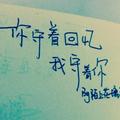 你守着回忆
我守着你